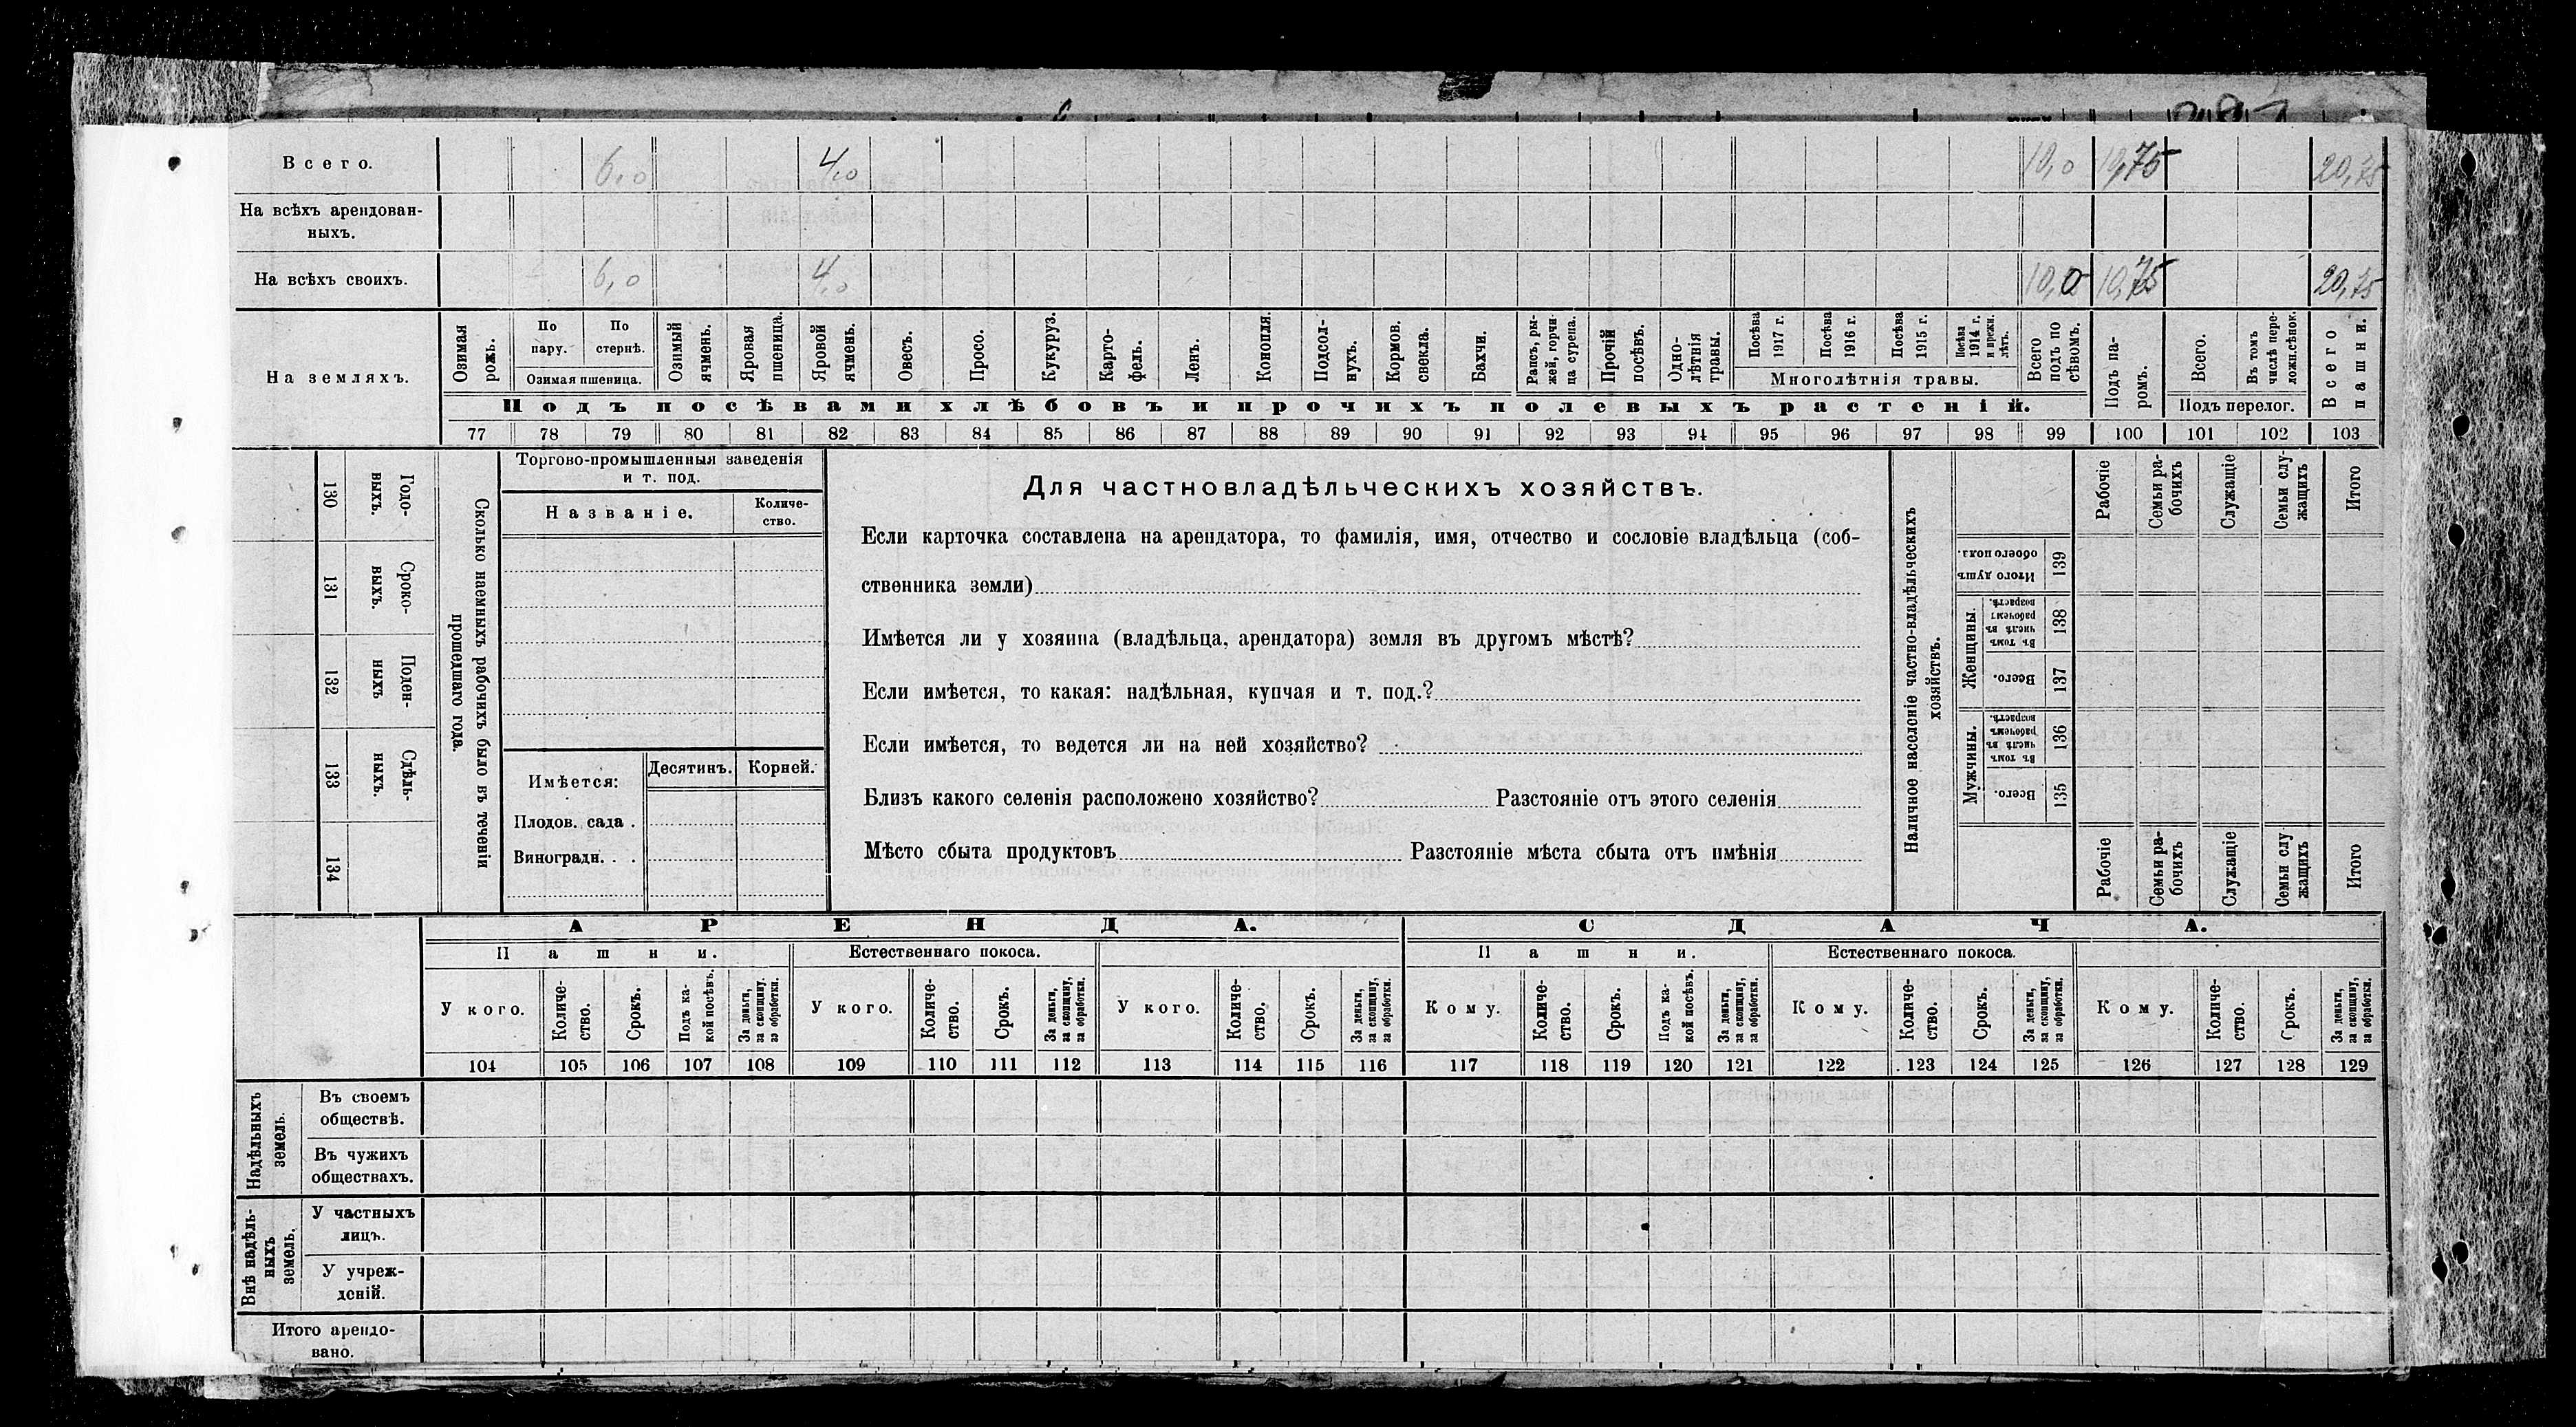 Всего. 6,0 4,0 10,0 10,75 20,75
На всѣхъ арендован-
ныхъ.
На всѣхъ своихъ. 6,0 4,0 10,0 10,75 20,75
На земляхъ.
Озимая рожь.
По пару.
По стернѣ.
Озимая пшеница.
Озимый ячмень.
Яровая пшеница.
Яровой ячмень.
Овесъ.
Просо.
Кукуруз.
Карто-
фель.
Ленъ.
Конопля.
Подсол-
нухъ.
Кормов. свекла.
Бахчи.
Рапсъ, ры-
жей, горчи-
ца сурепа.
Прочій посѣвъ.
Одно-
лѣтнія травы.
Посѣва 1917 г.
Посѣва 1916 г.
Посѣва 1915 г.
Посѣва 1914 г. и прежн. лѣтъ.
Многолѣтнія травы.
Всего подъ по сѣвомъ.
Подъ па-
ромъ.
Всего.
Въ томъ числѣ пере-
ложн. сѣнок.
Подъ перелог.
Всего пашни.
Подъ посѣвами хлѣбовъ и прочихъ полевыхъ растеній.
77 78 79 80 81 82 83 84 85 86 87 88 89 90 91 92 93 94 95 96 97 98 99 100 101 102 103
130 Годо-
выхъ.
131 Сроко-
выхъ.
132 Поден-
ныхъ
133 Сдѣль-
ныхъ.
134
Сколько наемныхъ рабочихъ было въ теченіи
прошедшаго года.
Торгово-промышленныя заведенія
и т. под.
Названіе.
Количе-
ство.
Имѣется:
Десятинъ. Корней.
Плодов. сада .
Виноградн. . .
Для частновладѣльческихъ хозяйствъ.
Если карточка составлена на арендатора, то фамилія, имя, отчество и сословіе владѣльца (соб-
ственника земли)
Имѣется ли у хозяина (владѣльца, арендатора) земля въ другомъ мѣстѣ?
Если имѣется, то какая: надѣльная, купчая и т. под.?
Если имѣется, то ведется ли на ней хозяйство?
Близъ какого селенія расположено хозяйство? Разстояніе отъ этого селенія
Мѣсто сбыта продуктовъ Разстояніе мѣста сбыта отъ имѣнія
Наличное населеніе частно-владѣльческихъ
хозяйствъ.
Рабочіе
Семьи ра-
бочихъ
Служащіе
Семьи слу-
жащихъ
Итого
Итого душъ обоего пола. 139
Женщины.
Въ томъ числѣ въ рабочемъ возрастѣ. 138
Всего. 137
Мужчины.
Въ томъ числѣ въ рабочемъ возрастѣ. 136
Всего. 135
Рабочіе
Семьи ра-
бочихъ
Служащіе
Семьи слу
жащихъ
Итого
АРЕНДА. СДАЧА.
Пашни. Естественнаго покоса. Пашни. Естественнаго покоса.
У кого.
Количе-
ство.
Срокъ.
Подъ ка-
кой посѣвъ.
За деньги, за скопщину, за обработки.
У кого.
Количе-
ство.
Срокъ.
За деньги, за скопщину, за обработки.
У кого.
Количе-
ство.
Срокъ.
За деньги, за скопщину, за обработки.
Кому.
Количе-
ство.
Срокъ.
Подъ ка-
кой посѣвъ.
За деньги, за скопщину, за обработки.
Кому.
Количе-
ство.
Срокъ.
За деньги, за скопщину, за обработки.
Кому.
Количе-
ство.
Срокъ.
За деньги, за скопщину, за обработки.
104 105 106 107 108 109 110 111 112 113 114 115 116 117 118 119 120 121 122 123 124 125 126 127 128 129
Надѣльныхъ
земель.
Въ своемъ
обществѣ.
Въ чужихъ
обществахъ.
Внѣ надѣль-
ныхъ
земель.
У частныхъ
лицъ.
У учреж-
деній.
Итого арендо-
вано.